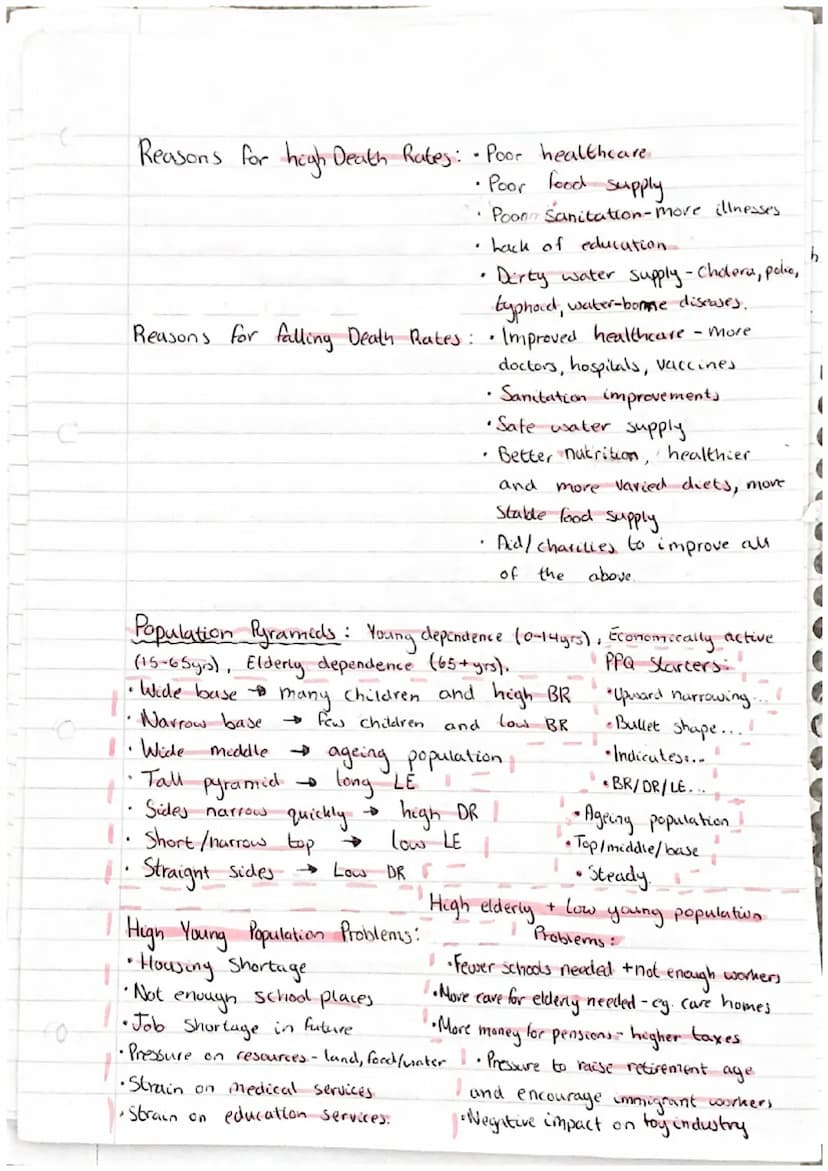 Reasons for high Death Rates: • Poor healthcare
• Poor food supply
• Poor Sanitation - more illnesses
• Lack of education
• Dirty water supply - Cholera, polio,
typhoid, water-borne diseases.
Reasons for falling Death Rates: • Improved healthcare - more
doctors, hospitals, vaccines
• Sanitation improvements
• Safe water supply
• Better nutrition, healthier
and more varied diets, more
Stable food supply
• Aid/charities to improve all
of the above
Population Pyramids: Young dependence (0-14yrs), Economically active
(15-65yrs), Elderly dependence (65+yrs).
• Wide base → many children and high BR
• Narrow base → few children and low BR
• Wide middle → ageing population
• Tall pyramid → long LE
• Sides narrow quickly → high DR
• Short/narrow top → low LE
• Straight sides → Low DR
PPQ Starters:
• Upward narrowing...
• Bullet shape...
• Indicates...
• BR/DR/LE...
• Ageing population
• Top/middle/base
• Steady
High Young Population Problems:
• Housing Shortage
• Not enough school places
• Job Shortage in future
• Pressure on resources - land, food/water
• Strain on medical services
• Strain on education services.
High elderly + Low young population
Problems:
• Fewer schools needed + not enough workers
• More care for elderly needed - eg. care homes
• More money for pensions - higher taxes
• Pressure to raise retirement age
and encourage immigrant workers
• Negative impact on toy industry